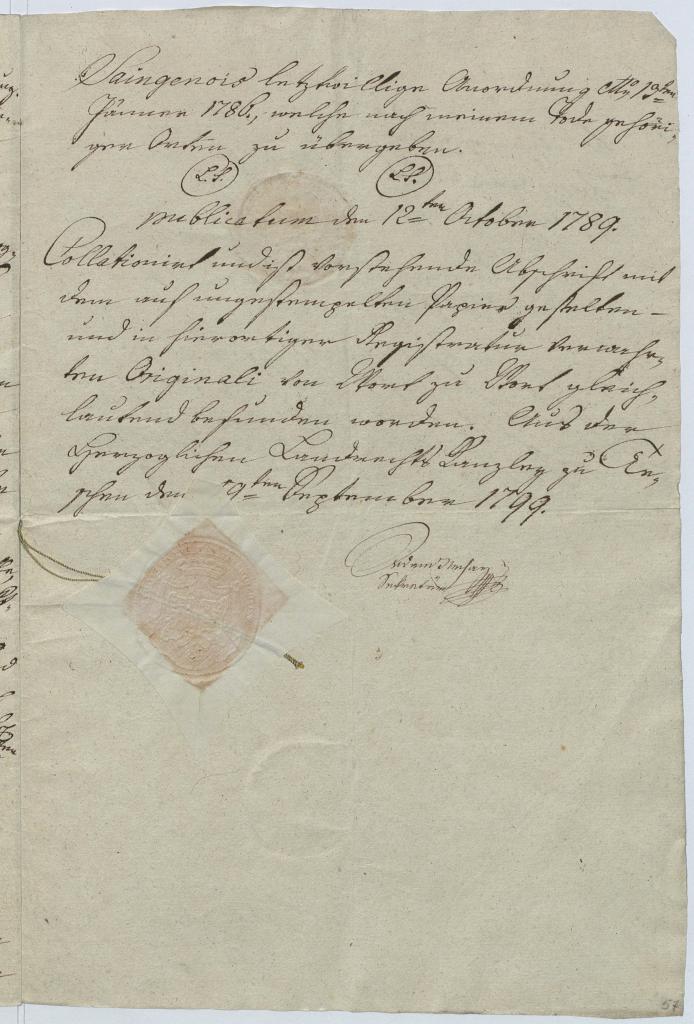 Saingenois letztwillige Anordnung dto 13ten
Jänner 1786., welche nach meinem Tode gehöri-
gen Orten zu übergeben.
L.S. L.S.
publicatum den 12ten October 1789.
Collationirt und ist vorstehende Abschrift mit
dem auf ungestempelten Papier gestelten –
und in hierortiger Registratur verwahr-
ten Originali von Wort zu Wort gleich-
lautend befunden worden. Aus der
Herzoglichen Landrechts Kanzley zu Te-
schen den 9ten September 1799.
Sekretär
57